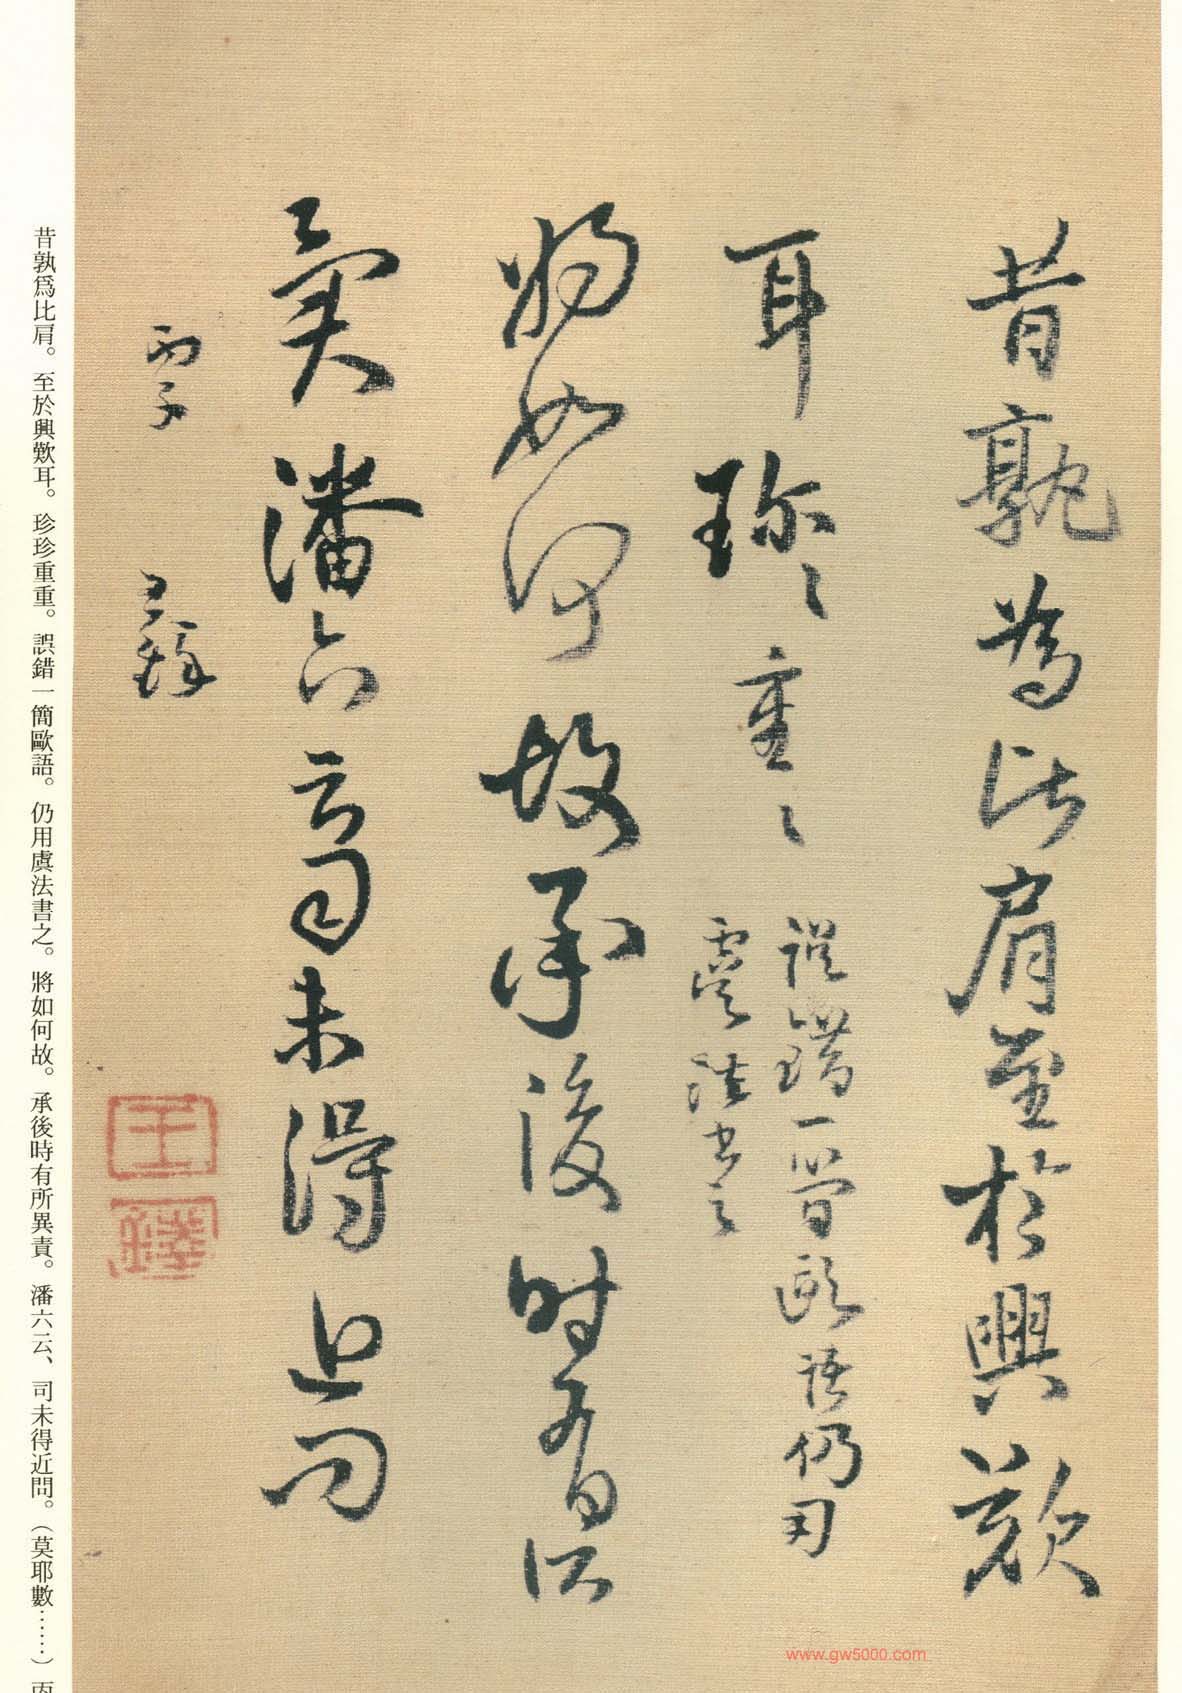 昔孰為比肩至於興歎
耳珍〻重〻
誤錯一簡歐語仍用
虞法書之
將如何故承後時有所
異責潘六云司未得近問
丙子
王鐸
王鐸
昔孰爲比肩。至於興歎耳。珍珍重重。誤錯一簡歐語。仍用虞法書之。將如何故。承後時有所異責。潘六云、司未得近問。（莫耶數……）丙
www.gw5000.com